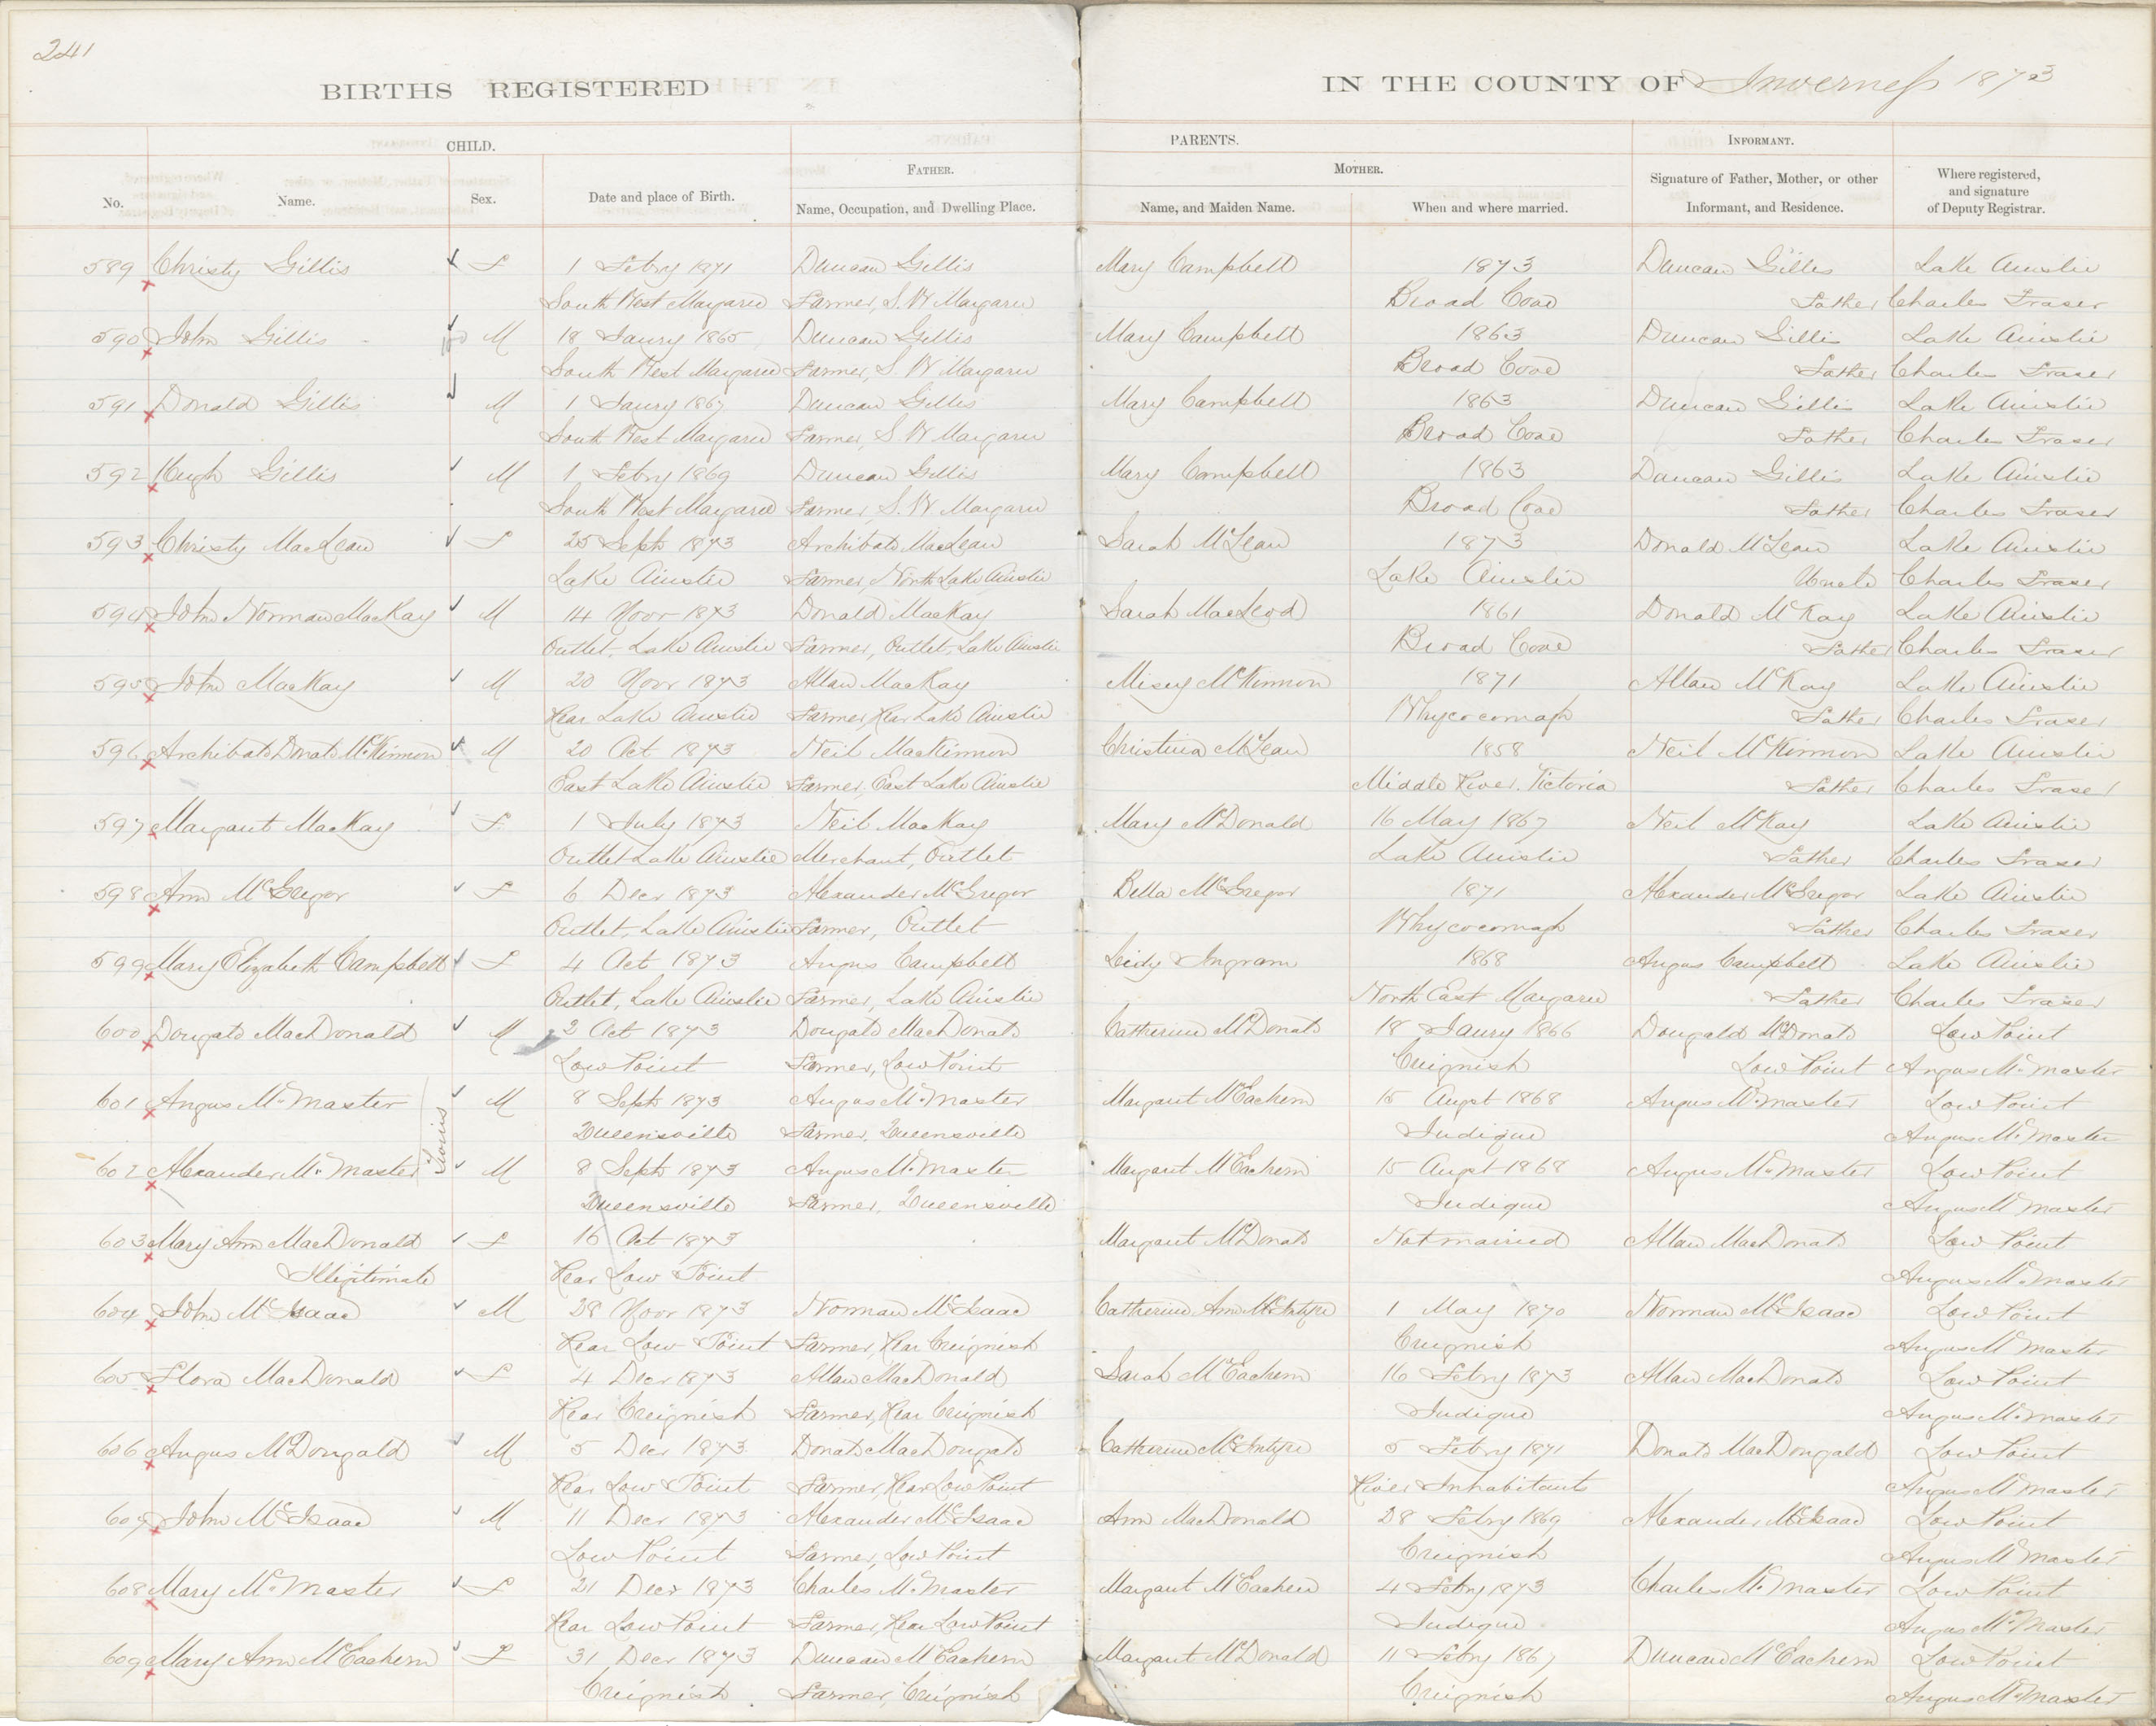 241
BIRTHS REGISTERED IN THE COUNTY OF Inverness 1873
CHILD. PARENTS. INFORMANT.
FATHER. MOTHER.
No. Name. Sex. Date and place of Birth. Name, Occupation, and Dwelling Place. Name, and Maiden Name. When and where married. Signature of Father, Mother, or other Informant, and Residence. Where registered, and signature of Deputy Registrar.
589 Christy Gillis F 1 Febry 1871 Duncan Gillis Mary Campbell 1873 Duncan Gillis Lake Ainslie
South West Margaree Farmer, S. W Margaree Broad Cove Father Charles Fraser
590 John Gillis M 18 Janry 1865 Duncan Gillis Mary Campbell 1863 Duncan Gillis Lake Ainslie
South West Margaree Farmer, S. W Margaree Broad Cove Father Charles Fraser
591 Donald Gillis M 1 Janry 1867 Duncan Gillis Mary Campbell 1863 Duncan Gillis Lake Ainslie
South West Margaree Farmer, S W Margaree Broad Cove Father Charles Fraser
592 Hugh Gillis M 1 Febry 1869 Duncan Gillis Mary Campbell 1863 Duncan Gillis Lake Ainslie
South West Margaree Farmer, S. W Margaree Broad Cove Father Charles Fraser
593 Christy MacLean F 25 Sept 1873 Archibald MacLean Sarah McLean 1873 Donald McLean Lake Ainslie
Lake Ainslie Farmer, North Lake Ainslie Lake Ainslie Uncle Charles Fraser
594 John Norman MacKay M 14 Novr 1873 Donald MacKay Sarah MacLeod 1861 Donald McKay Lake Ainslie
Outlet, Lake Ainslie Farmer, Outlet, Lake Ainslie Broad Cove Father Charles Fraser
595 John MacKay M 20 Novr 1873 Allan MacKay Misey McKinnon 1871 Allan McKay Lake Ainslie
Rear Lake Ainslie Farmer, Rear Lake Ainslie Whycocomagh Father Charles Fraser
596 Archibald Donald McKinnon M 20 Oct 1873 Neil MacKinnon Christina McLean 1858 Neil McKinnon Lake Ainslie
East Lake Ainslie Farmer, East Lake Ainslie Middle River. Victoria Father Charles Fraser
597 Margaret MacKay F 1 July 1873 Neil MacKay Mary McDonald 16 May 1867 Neil McKay Lake Ainslie
Outlet Lake Ainslie Merchant, Outlet Lake Ainslie Father Charles Fraser
598 Ann McGregor F 6 Decr 1873 Alexander McGregor Bella McGregor 1871 Alexander McGregor Lake Ainslie
Outlet, Lake Ainslie Farmer, Outlet Whycocomagh Father Charles Fraser
599 Mary Elizabeth Campbell F 4 Oct 1873 Angus Campbell Lidy Ingram 1868 Angus Campbell Lake Ainslie
Outlet, Lake Ainslie Farmer, Lake Ainslie North East Margaree Father Charles Fraser
600 Dougald MacDonald M 2 Oct 1873 Dougald MacDonald Catherine McDonald 18 Janry 1866 Dougald McDonald Low Point
Low Point Farmer, Low Point Creignish Low Point Angus McMaster
601 Angus McMaster M 8 Sept 1873 Angus McMaster Margaret McEachern 15 Augst 1868 Angus McMaster Low Point
Twins
Queensville Farmer, Queensville Judique Angus McMaster
602 Alexander McMaster M 8 Sept 1873 Angus McMaster Margaret McEachern 15 Augst 1868 Angus McMaster Low Point
Queensville Farmer, Queensville Judique Angus McMaster
603 Mary Ann MacDonald F 16 Oct 1873 Margaret McDonald Not married Allan MacDonald Low Point
Illegitimate Rear Low Point Angus McMaster
604 John McIsaac M 28 Novr 1873 Norman McIsaac Catherine Ann McIntyre 1 May 1870 Norman McIsaac Low Point
Rear Low Point Farmer, Rear Creignish Creignish Angus McMaster
605 Flora MacDonald F 4 Decr 1873 Allan MacDonald Sarah McEachern 16 Febry 1873 Allan MacDonald Low Point
Rear Creignish Farmer, Rear Creignish Judique Angus McMaster
606 Angus McDougald M 5 Decr 1873 Donald MacDougald Catherine McIntyre 5 Febry 1871 Donald MacDougald Low Point
Rear Low Point Farmer, Rear Low Point River Inhabitants Angus McMaster
607 John McIsaac M 11 Decr 1873 Alexander McIsaac Ann MacDonald 28 Febry 1869 Alexander McIsaac Low Point
Low Point Farmer, Low Point Creignish Angus McMaster
608 Mary McMaster F 21 Decr 1873 Charles McMaster Margaret McEachern 4 Febry 1873 Charles McMaster Low Point
Rear Low Point Farmer, Rear Low Point Judique Angus McMaster
609 Mary Ann McEachern F 31 Decr 1873 Duncan McEachern Margaret McDonald 11 Febry 1867 Duncan McEachern Low Point
Creignish Farmer, Creignish Creignish Angus McMaster